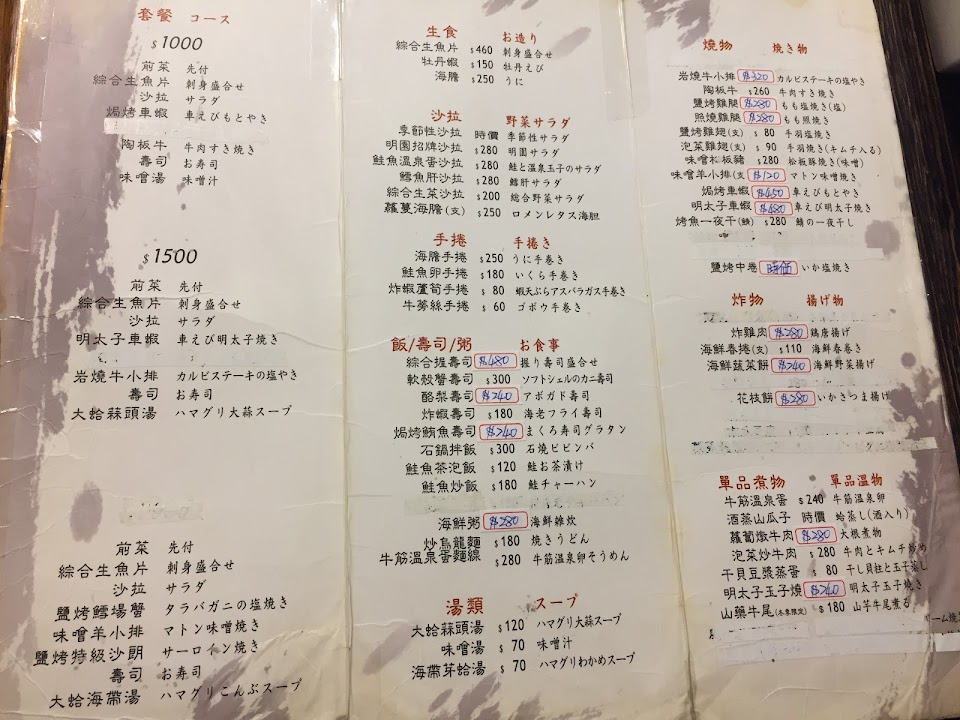 套餐 コース
$1000
前菜 先付
綜合生魚片 刺身盛合せ
沙拉 サラダ
焗烤車蝦 車えびもとやき
陶板牛 牛肉すき焼き
壽司 お寿司
味噌湯 味噌汁
$1500
前菜 先付
綜合生魚片 刺身盛合せ
沙拉 サラダ
明太子車蝦 車えび明太子焼き
岩燒牛小排 カルビステーキの塩やき
壽司 お寿司
大蛤蒜頭湯 ハマグリ大蒜スープ
前菜 先付
綜合生魚片 刺身盛合せ
沙拉 サラダ
鹽烤鱈場蟹 タラバガニの塩焼き
味噌羊小排 マトン味噌焼き
鹽烤特級沙朗 サーロイン焼き
壽司 お寿司
大蛤海帶湯 ハマグリこんぶスープ
生食 お造り
綜合生魚片 $460 刺身盛合せ
牡丹蝦 $150 牡丹えび
海膽 $250 うに
沙拉 野菜サラダ
季節性沙拉 時價 季節性サラダ
明園招牌沙拉 $280 明園サラダ
鮭魚溫泉蛋沙拉 $280 鮭と温泉玉子のサラダ
鱈魚肝沙拉 $280 鱈肝サラダ
綜合生菜沙拉 $200 総合野菜サラダ
蘿蔓海膽(支) $250 ロメンレタス海胆
手捲 手捲き
海膽手捲 $250 うに手巻き
鮭魚卵手捲 $180 いくら手巻き
炸蝦蘆筍手捲 $ 80 蝦天ぷらアスパラガス手巻き
牛蒡絲手捲 $ 60 ゴボウ手巻き
飯/壽司/粥 お食事
綜合握壽司 $480 握り寿司盛合せ
軟殼蟹壽司 $300 ソフトシェルのカニ寿司
酪梨壽司 $240 アボガド寿司
炸蝦壽司 $180 海老フライ寿司
焗烤鮪魚壽司 $240 まくろ寿司グラタン
石鍋拌飯 $300 石焼ビビンバ
鮭魚茶泡飯 $120 鮭お茶漬け
鮭魚炒飯 $180 鮭チャーハン
海鮮粥 $280 海鮮雑炊
炒烏龍麵 $180 焼きうどん
牛筋溫泉蛋麵線 $280 牛筋温泉卵そうめん
湯類 スープ
大蛤蒜頭湯 $120 ハマグリ大蒜スープ
味噌湯 $ 70 味噌汁
海帶芽蛤湯 $ 70 ハマグリわかめスープ
燒物 焼き物
岩燒牛小排 $320 カルビステーキの塩やき
陶板牛 $260 牛肉すき焼き
鹽烤雞腿 $280 もも塩焼き(塩)
照燒雞腿 $280 もも照焼き
鹽烤雞翅(支) $ 80 手羽塩焼き
泡菜雞翅(支) $ 90 手羽焼き(キムチ入る)
味噌松板豬 $280 松板豚焼き(味噌)
味噌羊小排(支) $120 マトン味噌焼き
焗烤車蝦 $450 車えびもとやき
明太子車蝦 $480 車えび明太子焼き
烤魚一夜干(鯖) $280 鯖の一夜干し
鹽烤中卷 時価 いか塩焼き
炸物 揚げ物
炸雞肉 $280 鶏唐揚げ
海鮮春捲(支) $110 海鮮春巻き
海鮮蔬菜餅 $240 海鮮野菜揚げ
花枝餅 $280 いかさつま揚げ
單品煮物 單品溫物
牛筋溫泉蛋 $240 牛筋温泉卵
酒蒸山瓜子 時價 蛤蒸し(酒入り)
蘿蔔燉牛肉 $280 大根煮物
泡菜炒牛肉 $280 牛肉とキムチ炒め
干貝豆漿蒸蛋 $ 80 干し貝柱と玉子蒸し
明太子玉子燒 $240 明太子玉子焼き
山藥牛尾(冬季限定) $180 山芋牛尾煮る